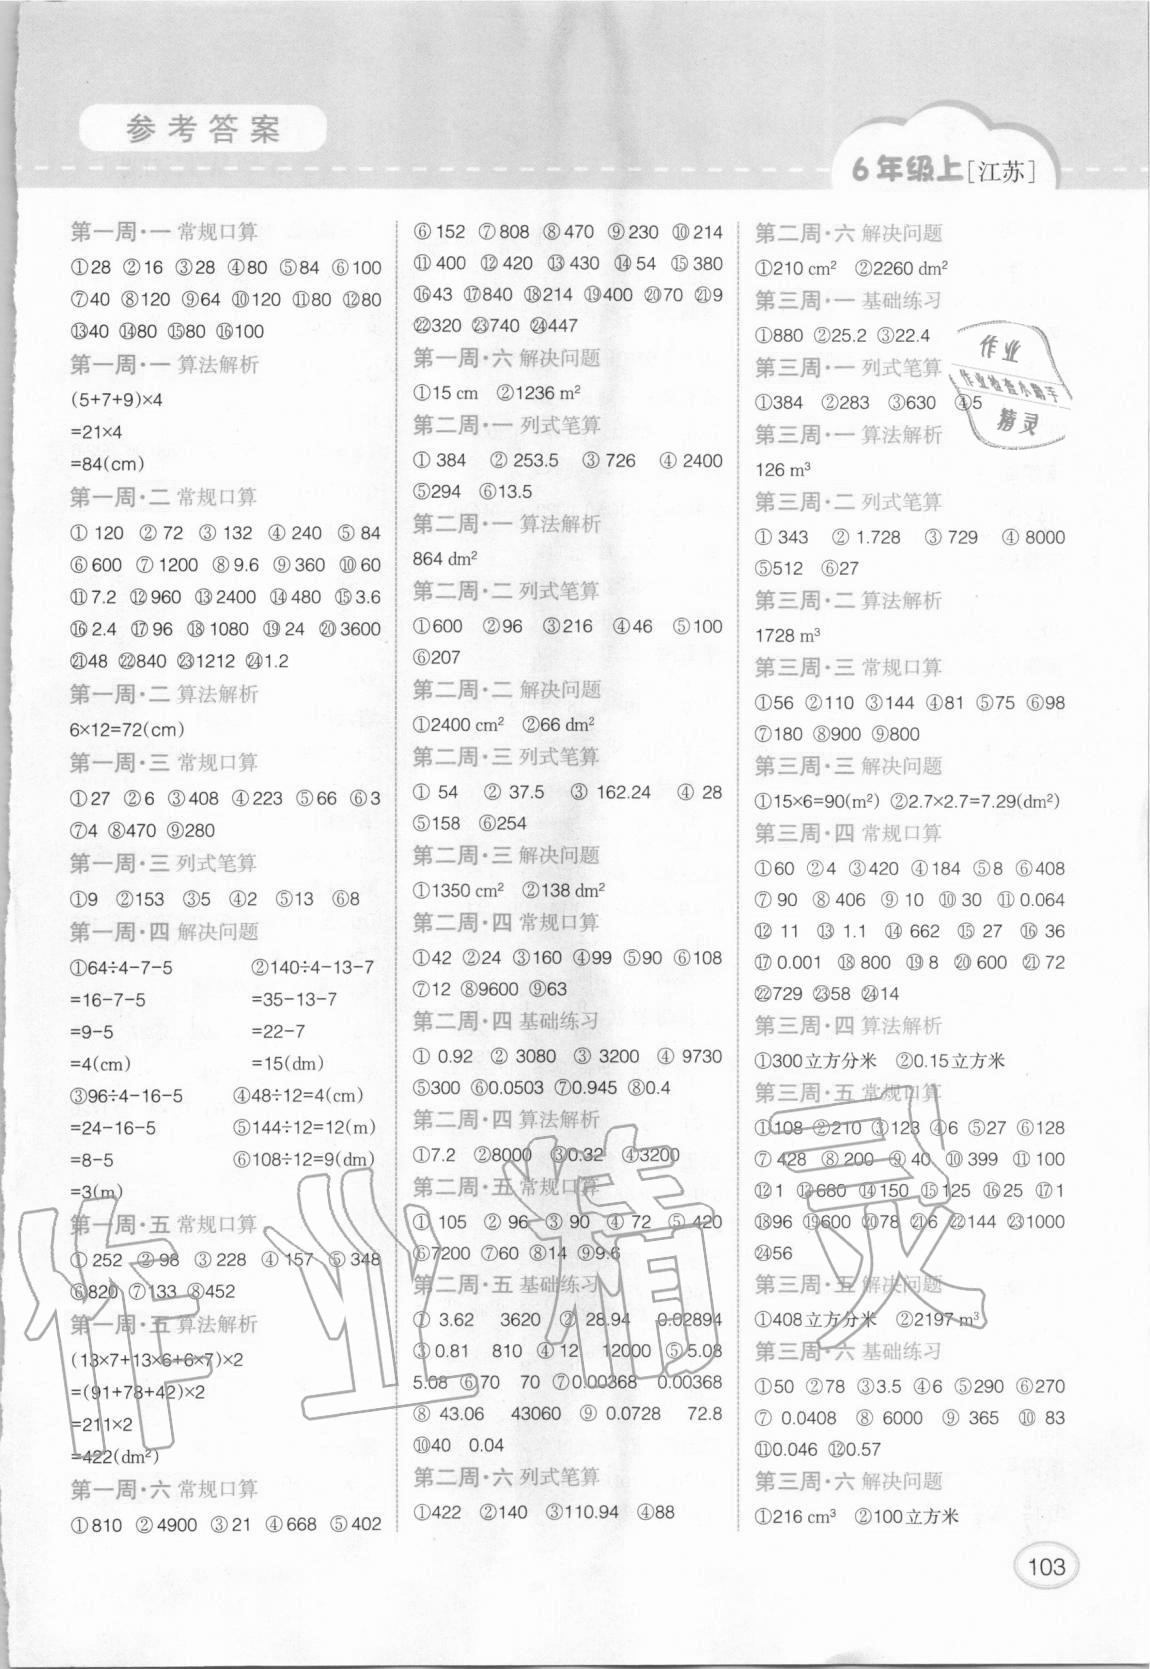 参考答案
6年级上[江苏]
第一周·一 常规口算
①28 ②16 ③28 ④80 ⑤84 ⑥100
⑦40 ⑧120 ⑨64 ⑩120 ⑪80 ⑫80
⑬40 ⑭80 ⑮80 ⑯100
第一周·一 算法解析
(5+7+9)×4
=21×4
=84(cm)
第一周·二 常规口算
①120 ②72 ③132 ④240 ⑤84
⑥600 ⑦1200 ⑧9.6 ⑨360 ⑩60
⑪7.2 ⑫960 ⑬2400 ⑭480 ⑮3.6
⑯2.4 ⑰96 ⑱1080 ⑲24 ⑳3600
㉑48 ㉒840 ㉓1212 ㉔1.2
第一周·二 算法解析
6×12=72(cm)
第一周·三 常规口算
①27 ②6 ③408 ④223 ⑤66 ⑥3
⑦4 ⑧470 ⑨280
第一周·三 列式笔算
①9 ②153 ③5 ④2 ⑤13 ⑥8
第一周·四 解决问题
①64÷4-7-5 ②140÷4-13-7
=16-7-5 =35-13-7
=9-5 =22-7
=4(cm) =15(dm)
③96÷4-16-5 ④48÷12=4(cm)
=24-16-5 ⑤144÷12=12(m)
=8-5 ⑥108÷12=9(dm)
=3(m)
第一周·五 常规口算
①252 ②98 ③228 ④157 ⑤348
⑥820 ⑦133 ⑧452
第一周·五 算法解析
(13×7+13×6+6×7)×2
=(91+78+42)×2
=211×2
=422(dm²)
第一周·六 常规口算
①810 ②4900 ③21 ④668 ⑤402
⑥152 ⑦808 ⑧470 ⑨230 ⑩214
⑪400 ⑫420 ⑬430 ⑭54 ⑮380
⑯43 ⑰840 ⑱214 ⑲400 ⑳70 ㉑9
㉒320 ㉓740 ㉔447
第一周·六 解决问题
①15 cm ②1236 m²
第二周·一 列式笔算
①384 ②253.5 ③726 ④2400
⑤294 ⑥13.5
第二周·一 算法解析
864 dm²
第二周·二 列式笔算
①600 ②96 ③216 ④46 ⑤100
⑥207
第二周·二 解决问题
①2400 cm² ②66 dm²
第二周·三 列式笔算
①54 ②37.5 ③162.24 ④28
⑤158 ⑥254
第二周·三 解决问题
①1350 cm² ②138 dm²
第二周·四 常规口算
①42 ②24 ③160 ④99 ⑤90 ⑥108
⑦12 ⑧9600 ⑨63
第二周·四 基础练习
①0.92 ②3080 ③3200 ④9730
⑤300 ⑥0.0503 ⑦0.945 ⑧0.4
第二周·四 算法解析
①7.2 ②8000 ③0.32 ④3200
第二周·五 常规口算
①105 ②96 ③90 ④72 ⑤420
⑥7200 ⑦60 ⑧14 ⑨9.6
第二周·五 基础练习
①3.62 3620 ②28.94 0.02894
③0.81 810 ④12 12000 ⑤5.08
5.08 ⑥70 70 ⑦0.00368 0.00368
⑧43.06 43060 ⑨0.0728 72.8
⑩40 0.04
第二周·六 列式笔算
①422 ②140 ③110.94 ④88
第二周·六 解决问题
①210 cm² ②2260 dm²
第三周·一 基础练习
①880 ②25.2 ③22.4
第三周·一 列式笔算
①384 ②283 ③630 ④5
第三周·一 算法解析
126 m³
第三周·二 列式笔算
①343 ②1.728 ③729 ④8000
⑤512 ⑥27
第三周·二 算法解析
1728 m³
第三周·三 常规口算
①56 ②110 ③144 ④81 ⑤75 ⑥98
⑦180 ⑧900 ⑨800
第三周·三 解决问题
①15×6=90(m²) ②2.7×2.7=7.29(dm²)
第三周·四 常规口算
①60 ②4 ③420 ④184 ⑤8 ⑥408
⑦90 ⑧406 ⑨10 ⑩30 ⑪0.064
⑫11 ⑬1.1 ⑭662 ⑮27 ⑯36
⑰0.001 ⑱800 ⑲8 ⑳600 ㉑72
㉒729 ㉓58 ㉔14
第三周·四 算法解析
①300立方分米 ②0.15立方米
第三周·五 常规口算
①108 ②210 ③123 ④6 ⑤27 ⑥128
⑦428 ⑧200 ⑨40 ⑩399 ⑪100
⑫1 ⑬680 ⑭150 ⑮125 ⑯25 ⑰1
⑱96 ⑲600 ⑳78 ㉑6 ㉒144 ㉓1000
㉔56
第三周·五 解决问题
①408立方分米 ②2197 m³
第三周·六 基础练习
①50 ②78 ③3.5 ④6 ⑤290 ⑥270
⑦0.0408 ⑧6000 ⑨365 ⑩83
⑪0.046 ⑫0.57
第三周·六 解决问题
①216 cm³ ②100立方米
作业
作业检查小帮手
精灵
作业精灵
103